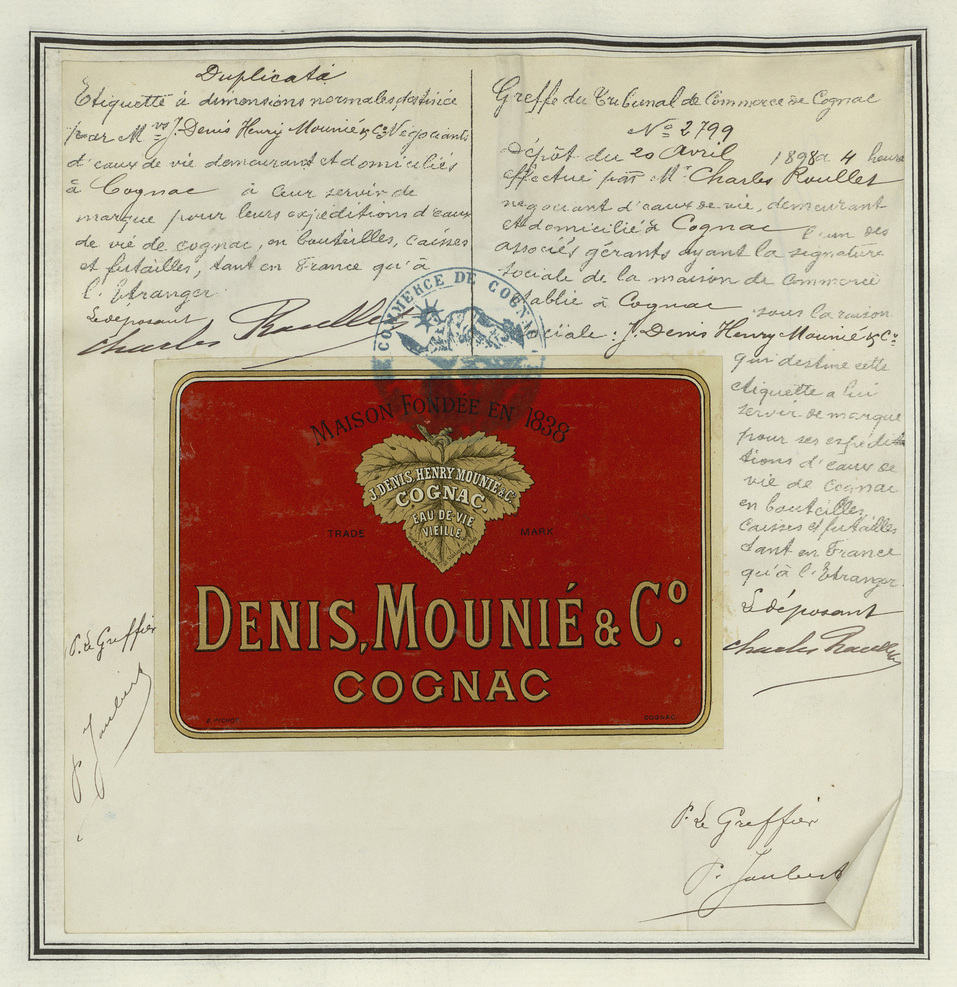 Duplicata
Etiquette à dimensions normales destinée
par M.rs J. Denis Henry Mounié & Co Négociants
d'eaux de vie demeurant et domiciliés
à Cognac à leur servir de
marque pour leurs expéditions d'eaux
de vie de cognac, en bouteilles, caisses
et futailles, tant en France qu'à
l'Etranger.
Le déposant
Charles Roullet
Greffe du Tribunal de Commerce de Cognac
No 2799
Dépôt du 20 Avril 1898 à 4 heures
effectué par Mr Charles Roullet
négociant d'eaux de vie, demeurant
et domicilié à Cognac l'un des
associés gérants ayant la signature
sociale de la maison de commerce
établie à Cognac sous la raison
sociale : J. Denis Henry Mounié & Co
qui destine cette
étiquette à lui
servir de marque
pour ses expédi-
tions d'eaux de
vie de Cognac
en bouteilles,
caisses et futailles
tant en France
qu'à l'Etranger.
Le déposant
Charles Roullet
COMMERCE DE COGNAC
MAISON FONDÉE EN 1838
J. DENIS, HENRY MOUNIÉ & Co
COGNAC.
EAU DE VIE
VIEILLE
TRADE MARK
DENIS, MOUNIÉ & Co.
COGNAC
COGNAC
P. Le Greffier
P. Jaubert
P. Le Greffier
P. Jaubert